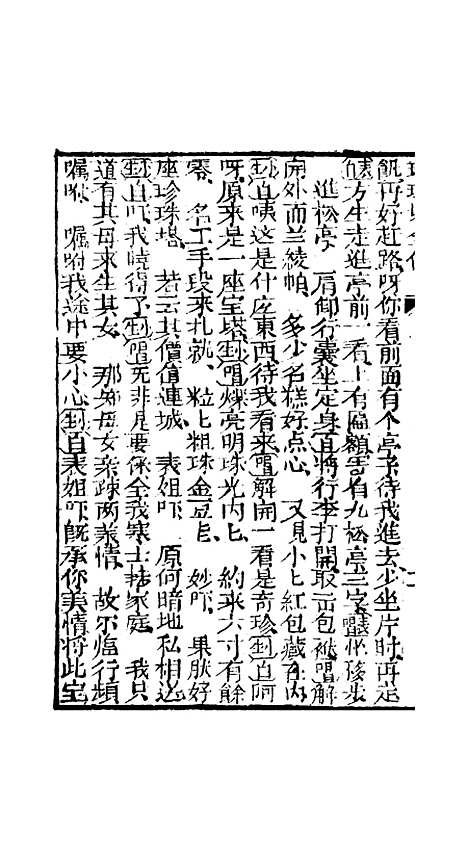 飢再好赶路呀你看前面有个亭子待我進去少坐片时再走
方生走進亭前一看上有匾額書有九松亭三字唱忙移步
進松亭 肩卸行囊坐定身白將行李打開取出包袱唱解
開外面兰綾帕 多少名糕好点心 又見小小紅包藏在内
白咦这是什庅東西待我看来唱解開一看是奇珍白阿
呀原来是一座宝塔唱爍亮明珠光内上 約来六寸有餘
零 名工手段来扎就 粒上粗珠金豆 妙吓 果肰好
座珍珠塔 若云其價值連城 表姐吓 原何暗地私相送
白吓我曉得了唱无非是要保全我寒士轉家庭 我只
道有其母来生其女 那知母女亲踈两兼情 故尔臨行頻
嘱咐 嘱咐我途中要小心白表姐吓既承你美情將此宝